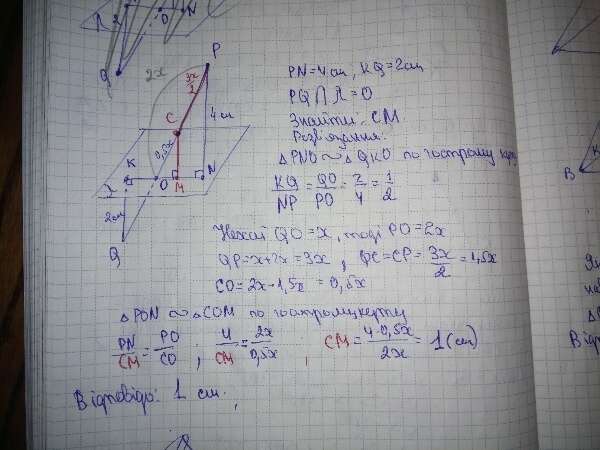 Q
2x
P
3x
2
C
4 см
0,5x
K
O
M
N
λ
2см
Q
PN=4см, KQ=2см
PQ∩λ=O
Знайти: CM.
Розв'язання:
△PNO ~ △QKO по гострому куту
KQ/NP = QO/PO = 2/4 = 1/2
Нехай QO=x, тоді PO=2x
QP=x+2x=3x, QC=CP=3x/2=1,5x
CO=2x-1,5x=0,5x
△PON ~ △COM по гострому куту
PN/CM = PO/CO ; 4/CM = 2x/0,5x ; CM = 4·0,5x/2x = 1(см)
Відповідь: 1 см.